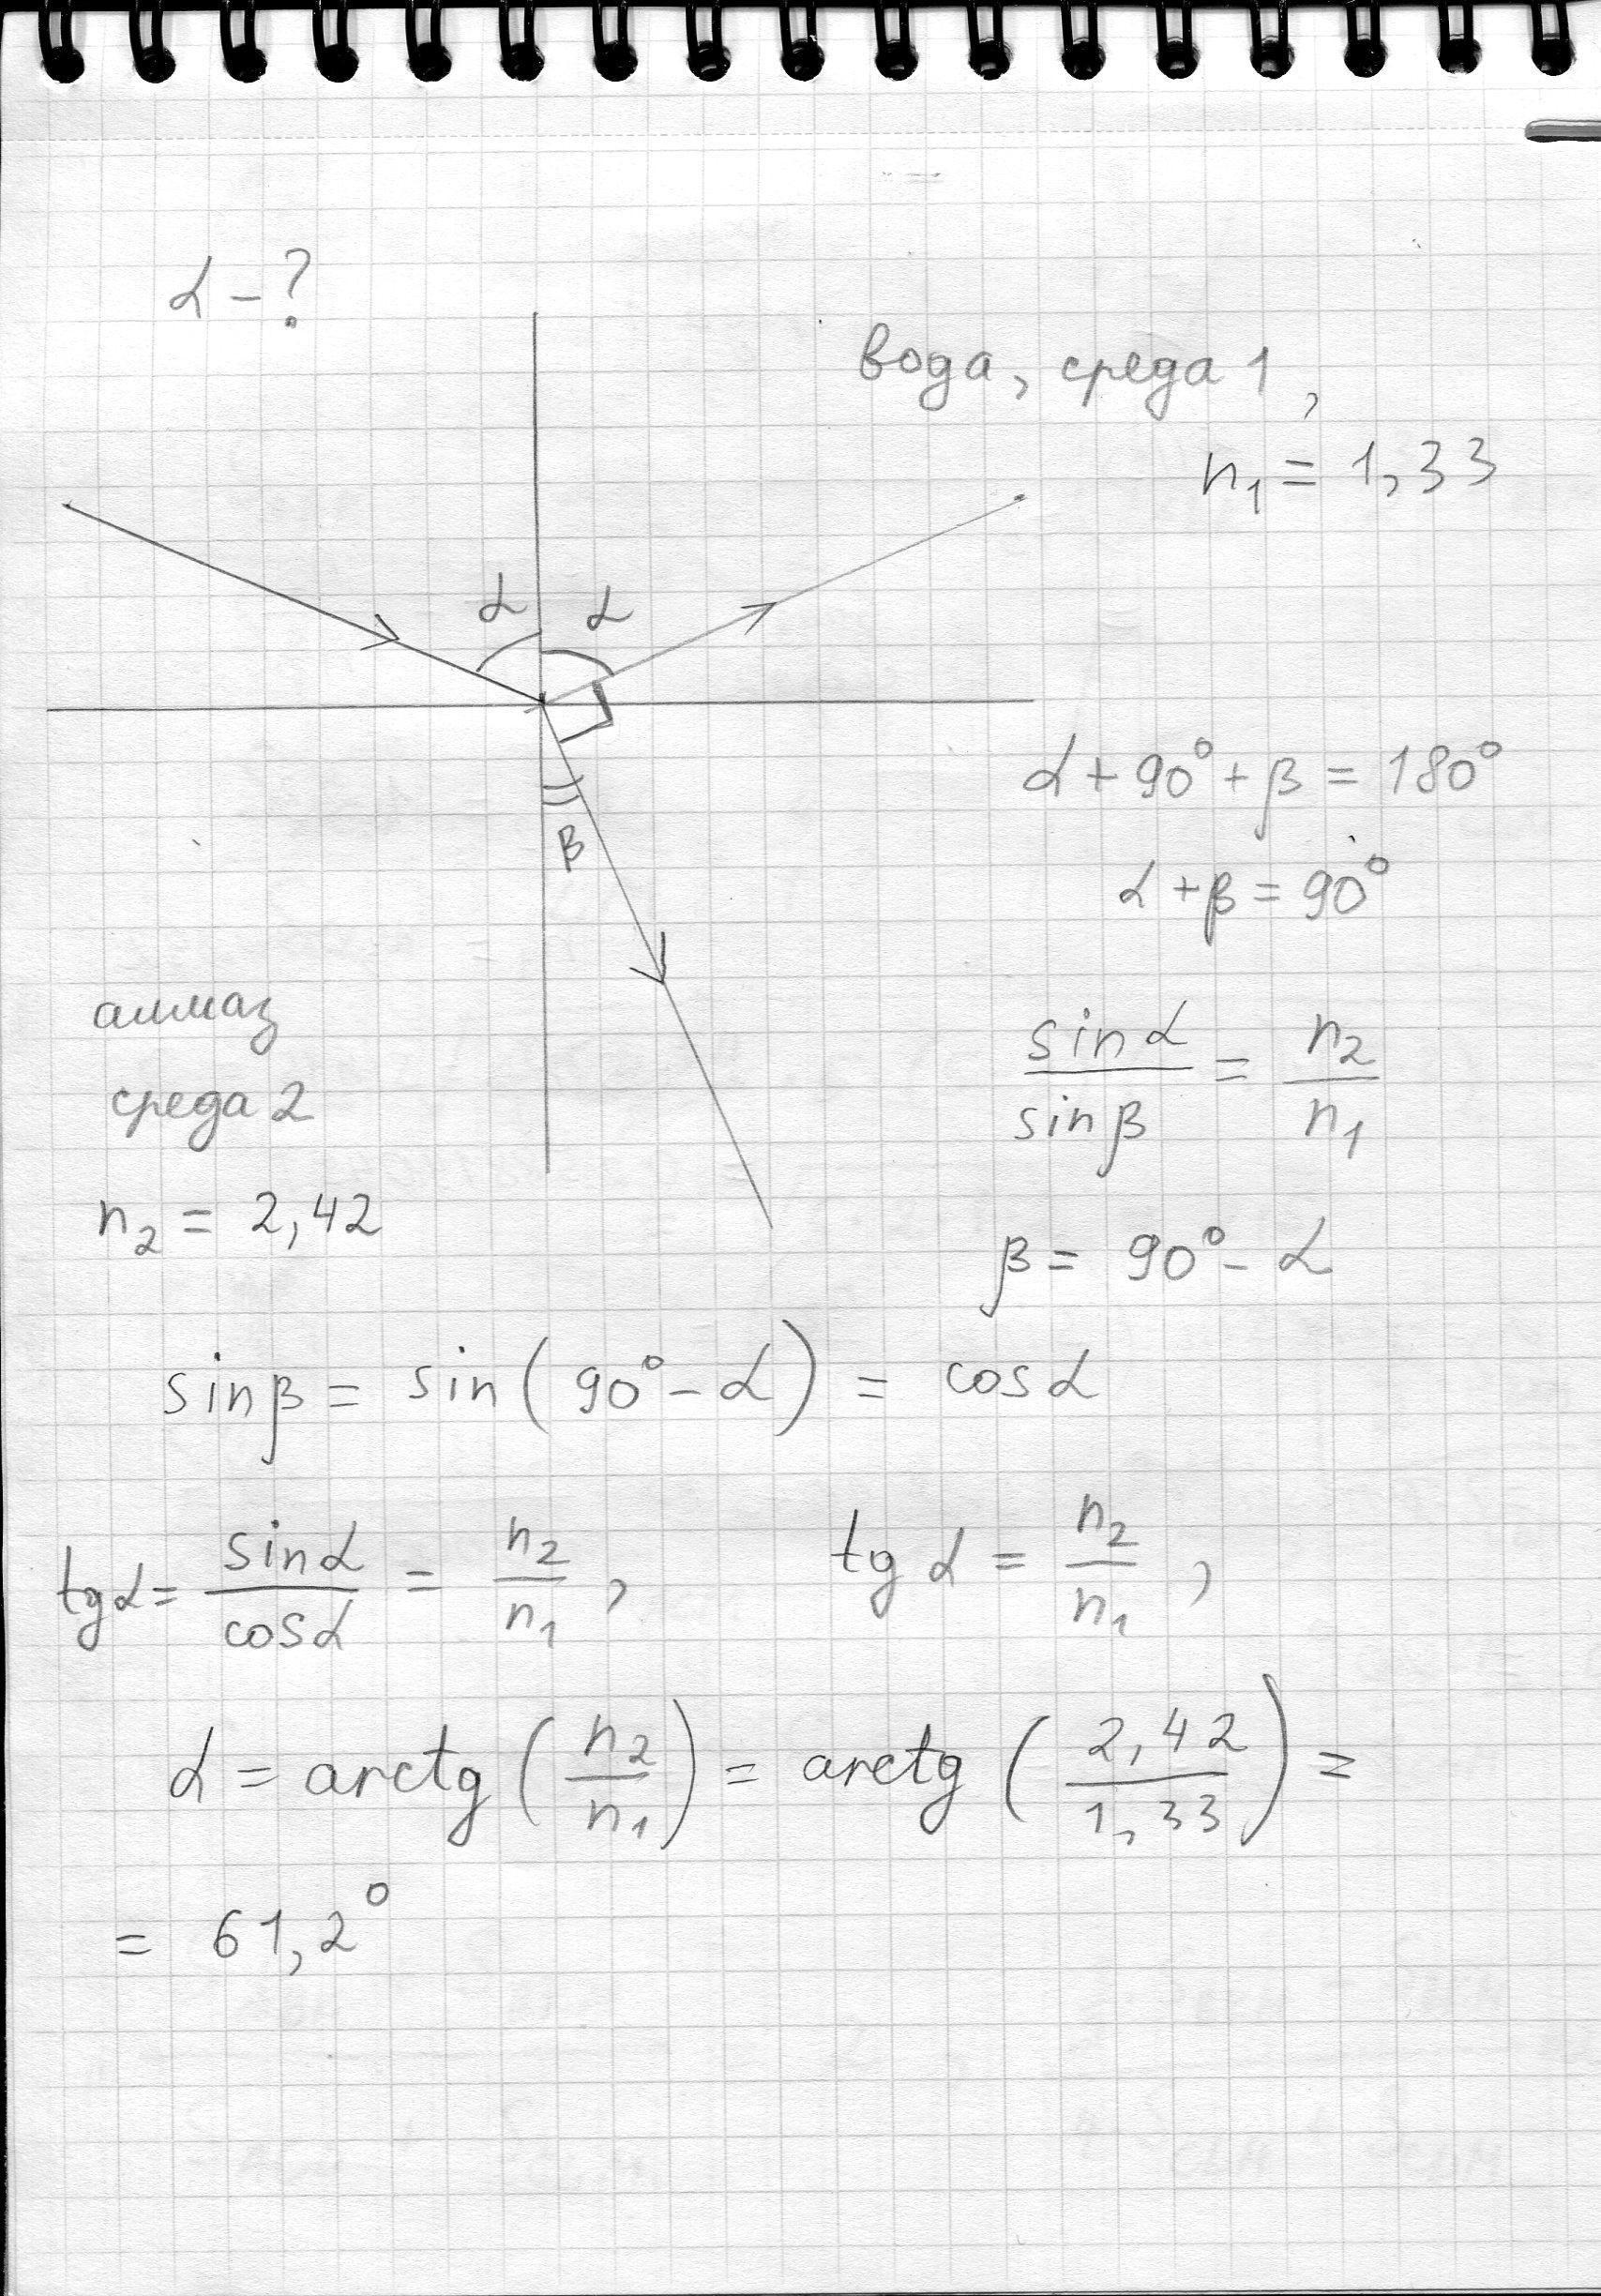 α - ?
вода, среда 1,
n₁ = 1,33
α α
α + 90° + β = 180°
β
α + β = 90°
алмаз
среда 2
sinα / sinβ = n₂ / n₁
n₂ = 2,42
β = 90° - α
sinβ = sin(90° - α) = cosα
tgα = sinα / cosα = n₂ / n₁, tgα = n₂ / n₁,
α = arctg(n₂ / n₁) = arctg(2,42 / 1,33) =
= 61,2°